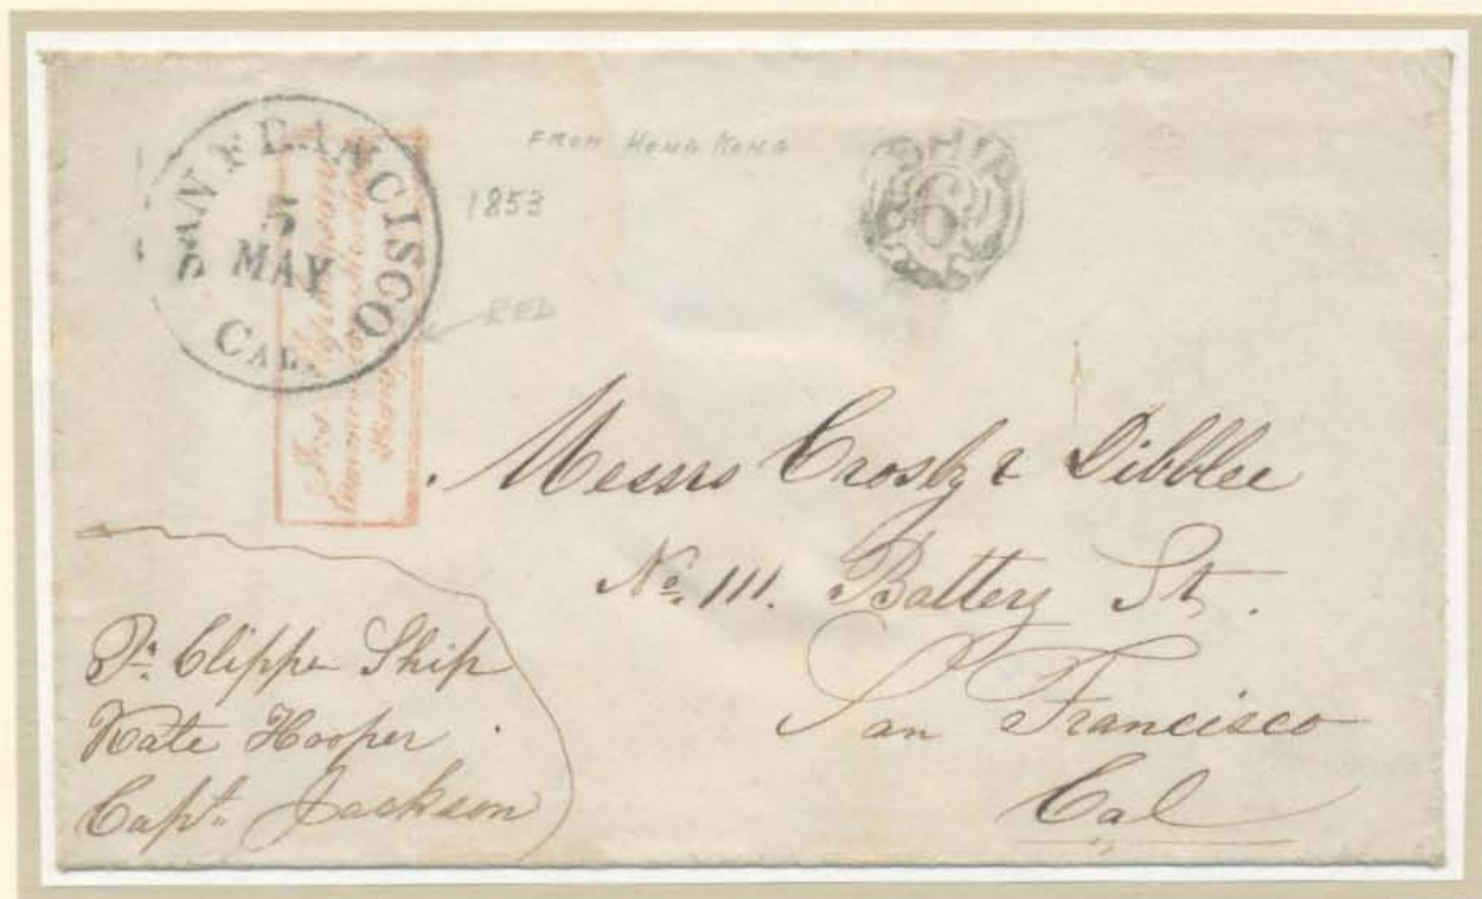 SAN FRANCISCO
5
MAY
CAL.
FROM HONG KONG
1853
RED
SHIP
6
Messrs Crosby & Dibblee
No. 111. Battery St.
San Francisco
Cal
Pr. Clipper Ship
Kate Hooper
Capt. Jackson